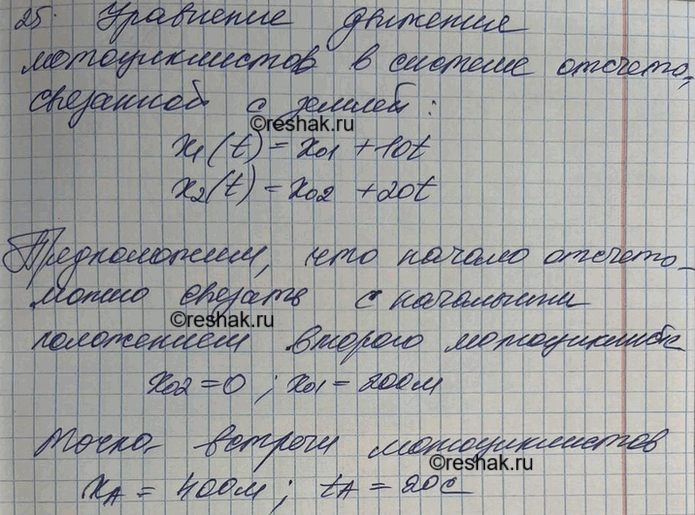 25. Уравнение движение
мотоциклистов в системе отсчета,
связанной с землей:
©reshak.ru
x₁(t) = x₀₁ + 10t
x₂(t) = x₀₂ + 20t
Предположим, что начало отсчета
можно связать с начальным
©reshak.ru
положением второго мотоциклиста
x₀₂ = 0 ; x₀₁ = 200м
точка встречи мотоциклистов
©reshak.ru
x_A = 400м ; t_A = 20с